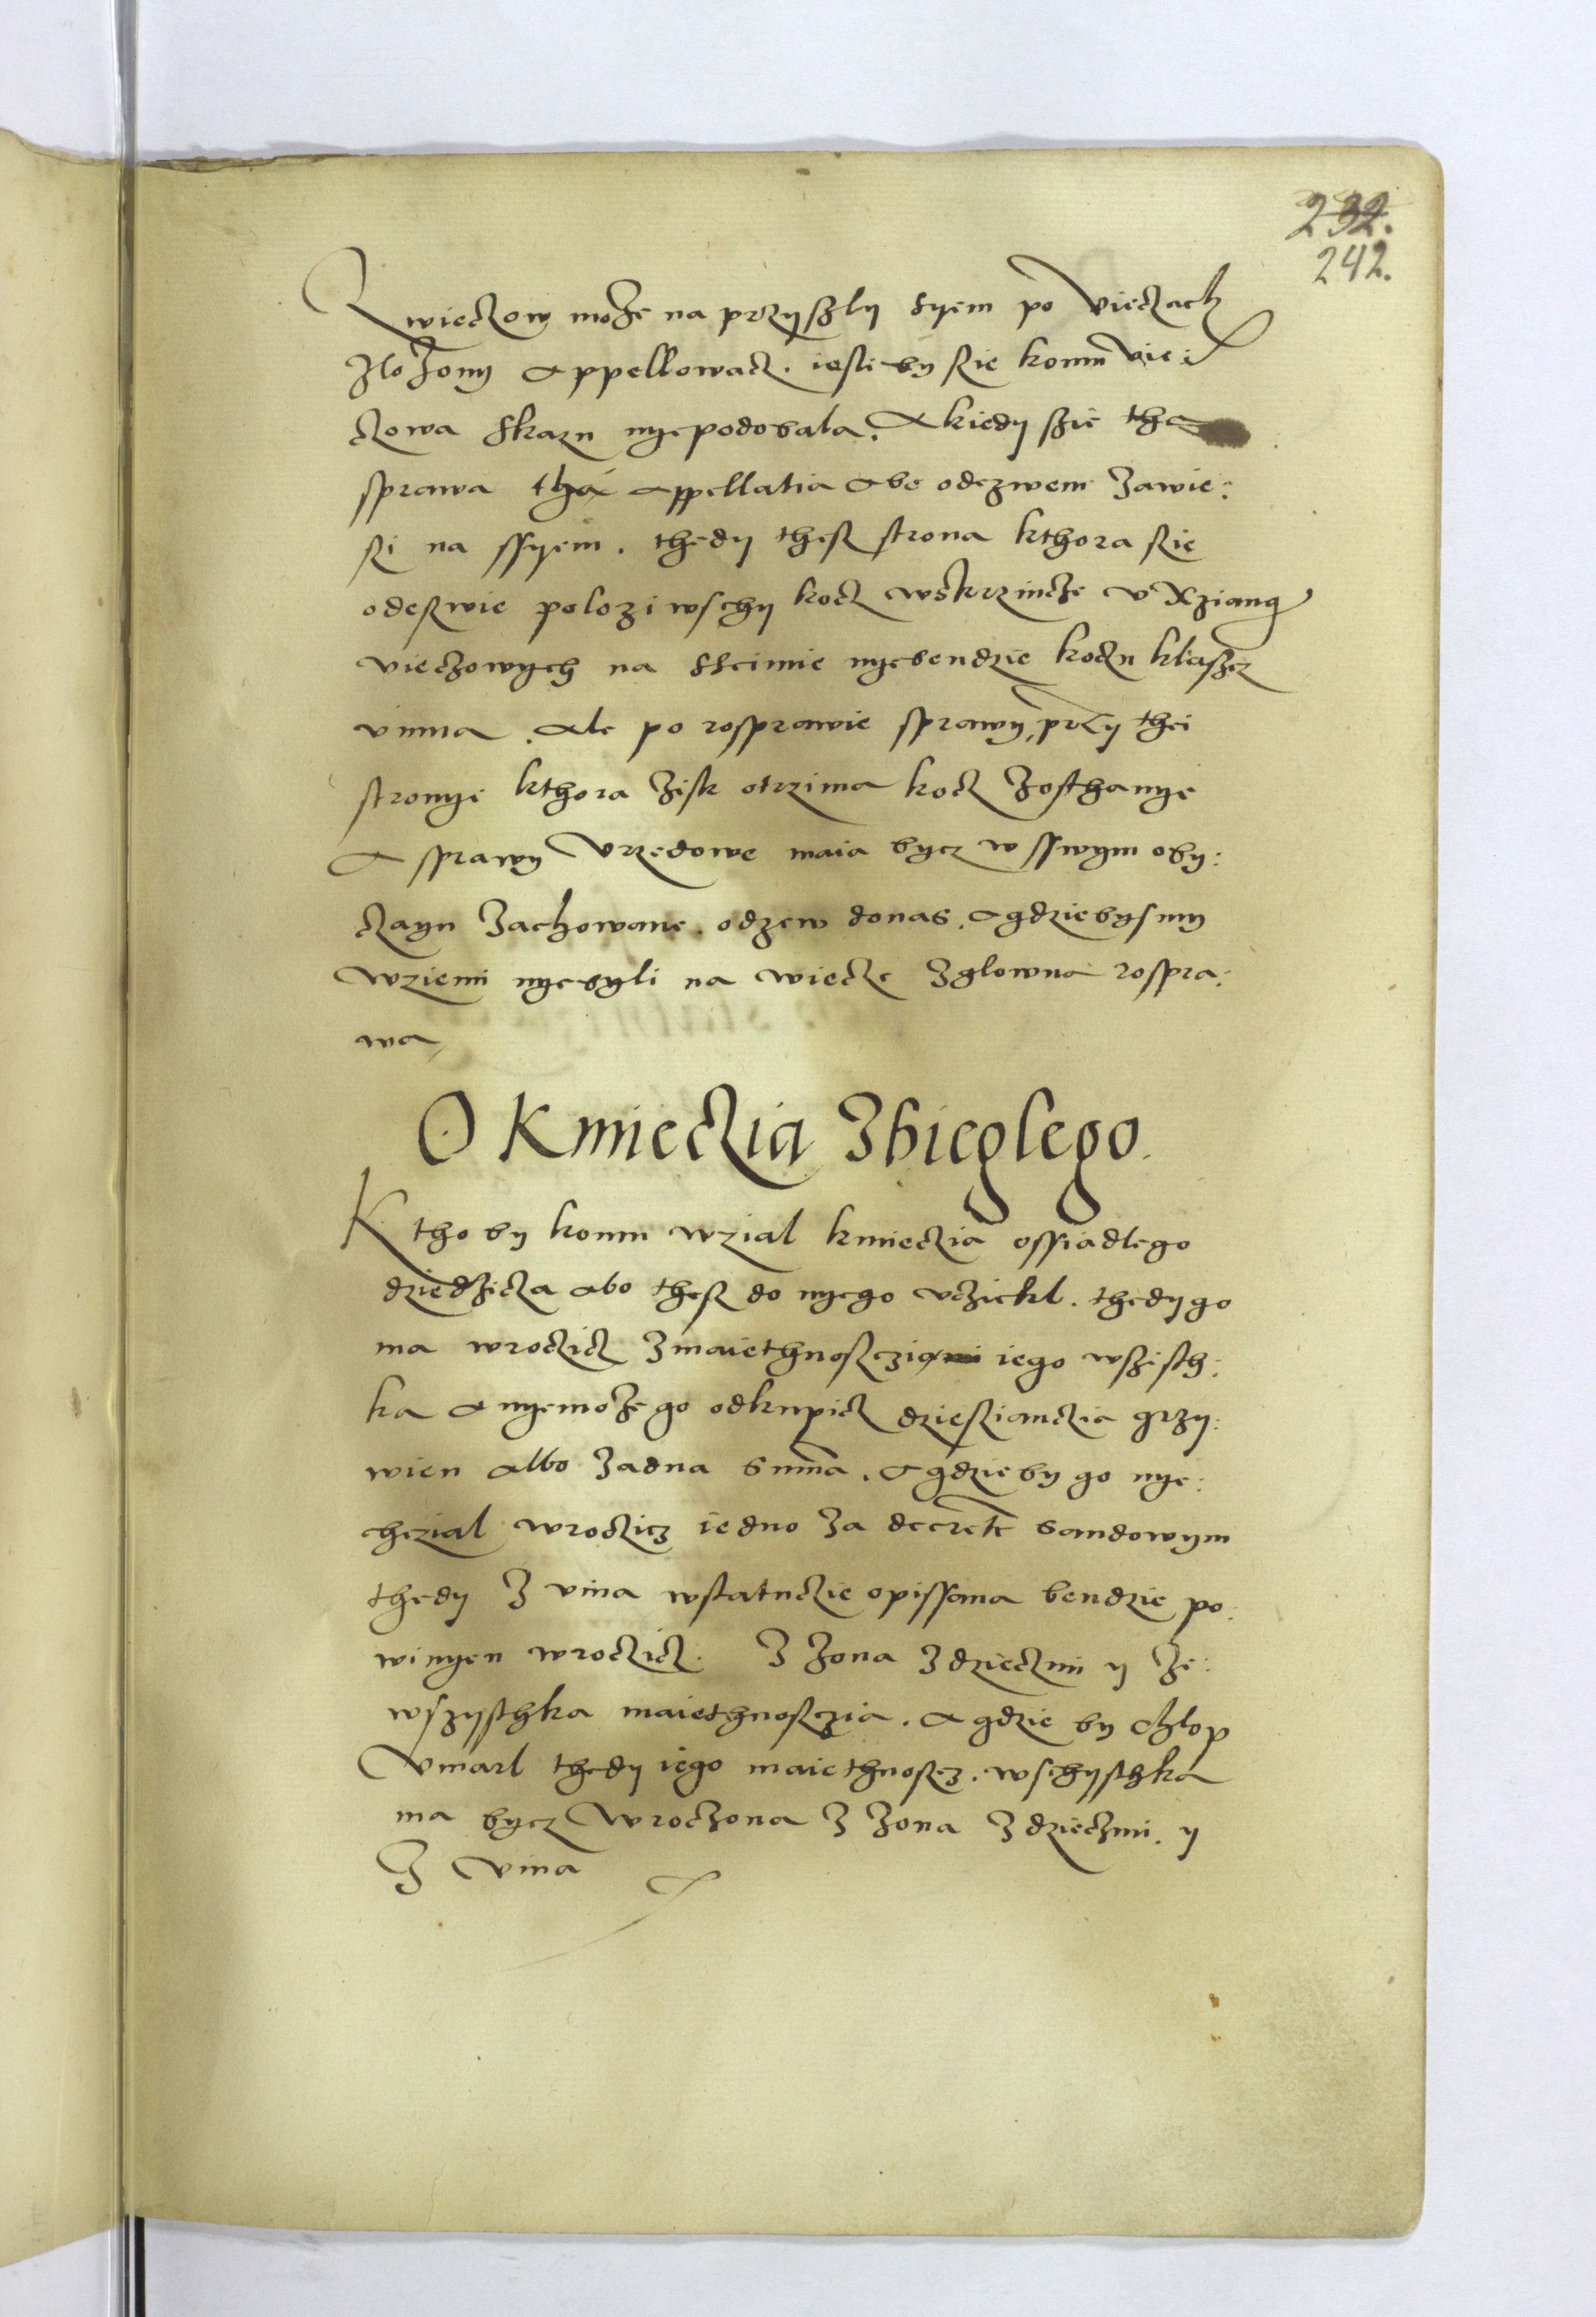 232.
242.
Z wieczow może na przyszly syem po vieczach
złożony appellowacz. iesli by sie komu vie:
czowa skazn nyepodobala. A kiedy szie tha
sprawa tha appellatia abo odezwem zawie:
si na ssyem. thedy thesz strona kthora sie
odeswie polozi wschy kocz wskrzincze v Xziang
vieczowych na sseimie nyebendzie koczu klaszcz
vinna. Ale po rosprawie sprawy, przy thei
stronye kthora zisk otrzima kocz zosthanye
A sprawy vrzedowe maia bycz w sswym oby:
czayu zachowane. odzew donas. a gdziebysmy
wziemi nyebyli na wiecze zglowna rospra:
wa
O Kmieczia Zbieglego.
Kthoby komu wzial kmieczia ossiadlego
dziedzicza abo thesz do nyego vcziekl. thedy go
ma wroczicz zmaiethnoscziami iego wszisth:
ka a nyemoże go odkupicz dziesianczia grzy:
wien albo zadna summa. A gdzieby go nye:
chczial wroczicz iedno za decrete sandowym
thedy z vina wstatuczie opissana bendzie po:
winyen wroczicz. Z zona zdzieczmi y ze:
wszysthka maiethnosczia. A gdzie by chlop
Vmarl thedy iego maiethnoscz. wschysthka
ma bycz wroczona z zona zdzieczmi. y
z vina